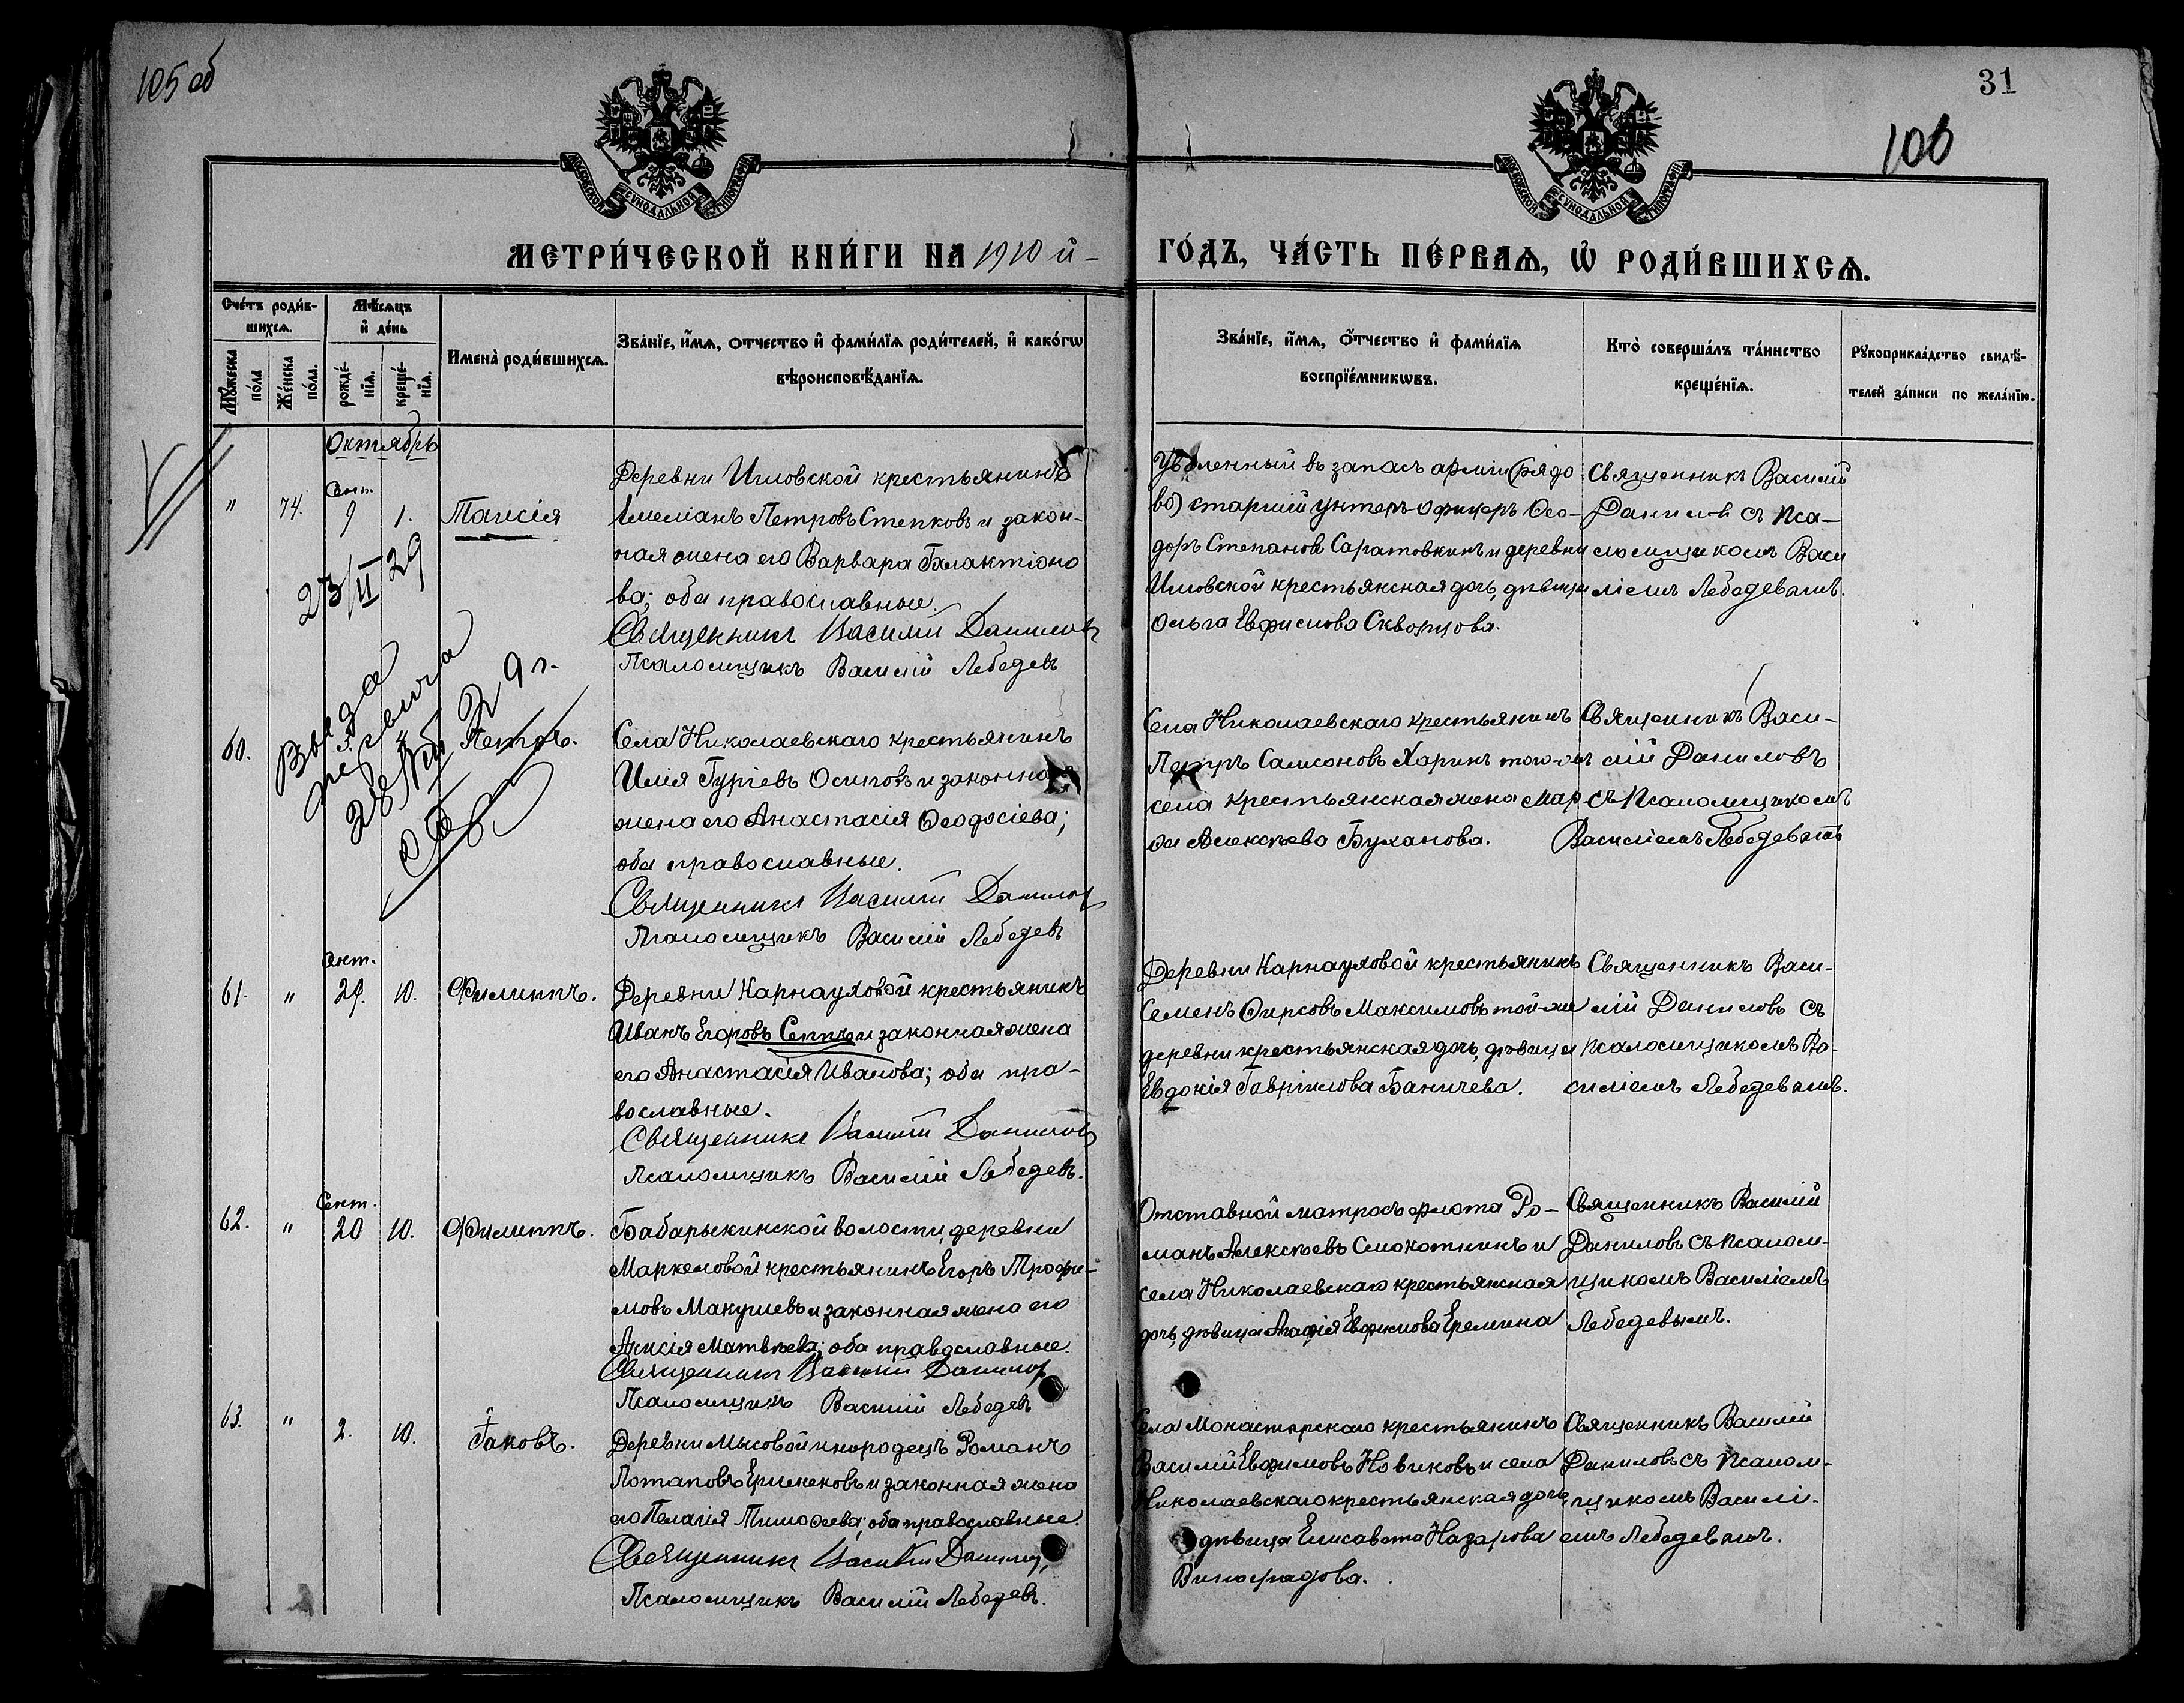 105 об
31
106
МОСКОВСКОЙ СѴНОДАЛЬНОЙ ТИПОГРАФІИ
МОСКОВСКОЙ СѴНОДАЛЬНОЙ ТИПОГРАФІИ
МЕТРИ́ЧЕСКОЙ КНИ́ГИ НА 1910 й
ГО́ДЪ, ЧА́СТЬ ПЕ́РВАѦ, Ѽ РОДИ́ВШИХСѦ.
Сче́тъ роди́в-
шихсѧ.
Мѣ́сѧцъ
и҆ де́нь
Мꙋ́жеска по́ла
Же́нска по́ла.
рожде́-нїѧ.
креще́-нїѧ.
Имена̀ роди́вшихсѧ.
Зва́нїе, и҆́мѧ, о́тчество и҆ фами́лїѧ роди́телей, и҆ како́гѡ
вѣроисповѣ́данїѧ.
Зва́нїе, и҆́мѧ, ѻ҆́тчество и҆ фами́лїѧ
воспрїе́мникѡвъ.
Кто̀ соверша́лъ та́инство
креще́нїѧ.
Рꙋкоприкла́дство свидѣ́-
телей за́писи по жела́нїю.
Октябрь
" 74. Сент. 9 1. Таисія
Деревни Ишовской крестьянинъ
Емеліанъ Петровъ Степковъ и закон-
ная жена его Варвара Галактіоно
ва; оба православные.
Священникъ Василій Данилов
Псаломщикъ Василій Лебедевъ
Уволенный въ запасъ арміи (рядо
во) старшій унтеръ-офицеръ Ѳео-
доръ Степановъ Саратовкинъ и деревни
Ишовской крестьянская дочь, дѣвица
Ольга Евфимова Скворцова.
Священникъ Василій
Даниловъ съ Пса-
ломщикомъ Васи
ліемъ Лебедевымъ.
23/II 29
60. Петръ.
Села Николаевскаго крестьянинъ
Илія Гуріевъ Осиповъ и законная
жена его Анастасія Ѳеодосіева;
оба православные.
Священникъ Василій Данилов
Псаломщикъ Василій Лебедевъ
Села Николаевскаго крестьянинъ
Петръ Самсоновъ Харинъ того-же
села крестьянская жена Мар
ѳа Алексѣева Буханова.
Священникъ Васи-
лій Даниловъ
съ Псаломщикомъ
Василіемъ Лебедевымъ
61. " Сент. 29. 10. Филиппъ.
Деревни Карнауховой крестьянинъ
Иванъ Егоровъ Сеппъ и законная жена
его Анастасія Иванова; оба пра-
вославные.
Священникъ Василій Данилов
Псаломщикъ Василій Лебедевъ.
Деревни Карнауховой крестьянинъ
Семенъ Ѳирсовъ Максимовъ той-же
деревни крестьянская дочь, дѣвица
Евдокія Гавріилова Баничева.
Священникъ Васи-
лій Даниловъ съ
псаломщикомъ Ва-
силіемъ Лебедевымъ.
62. " Сент. 20 10. Филиппъ.
Бабарыкинской волости, деревни
Маркеловой крестьянинъ Егоръ Трофи-
мовъ Макушевъ и законная жена его
Анисія Матвѣева; оба православные.
Священникъ Василій Данилов
Псаломщикъ Василій Лебедевъ
Отставной матросъ флота Ро-
манъ Алексѣевъ Смокотнинъ и
села Николаевскаго крестьянская
дочь, дѣвица Агаѳія Евфимова Еремина
Священникъ Василій
Даниловъ съ псалом-
щикомъ Василіемъ
Лебедевымъ.
63. " 2. 10. Іаковъ.
Деревни Мысовой инородецъ Романъ
Потаповъ Еришековъ и законная жена
его Пелагія Тимоѳеева; оба православные.
Священникъ Василій Данилов
Псаломщикъ Василій Лебедевъ.
Села Монастырскаго крестьянинъ
Василій Евфимовъ Новиковъ и села
Николаевскаго крестьянская дочь,
дѣвица Елисавета Назарова
Виноградова.
Священникъ Василій
Даниловъ съ Псалом-
щикомъ Василі-
емъ Лебедевымъ.